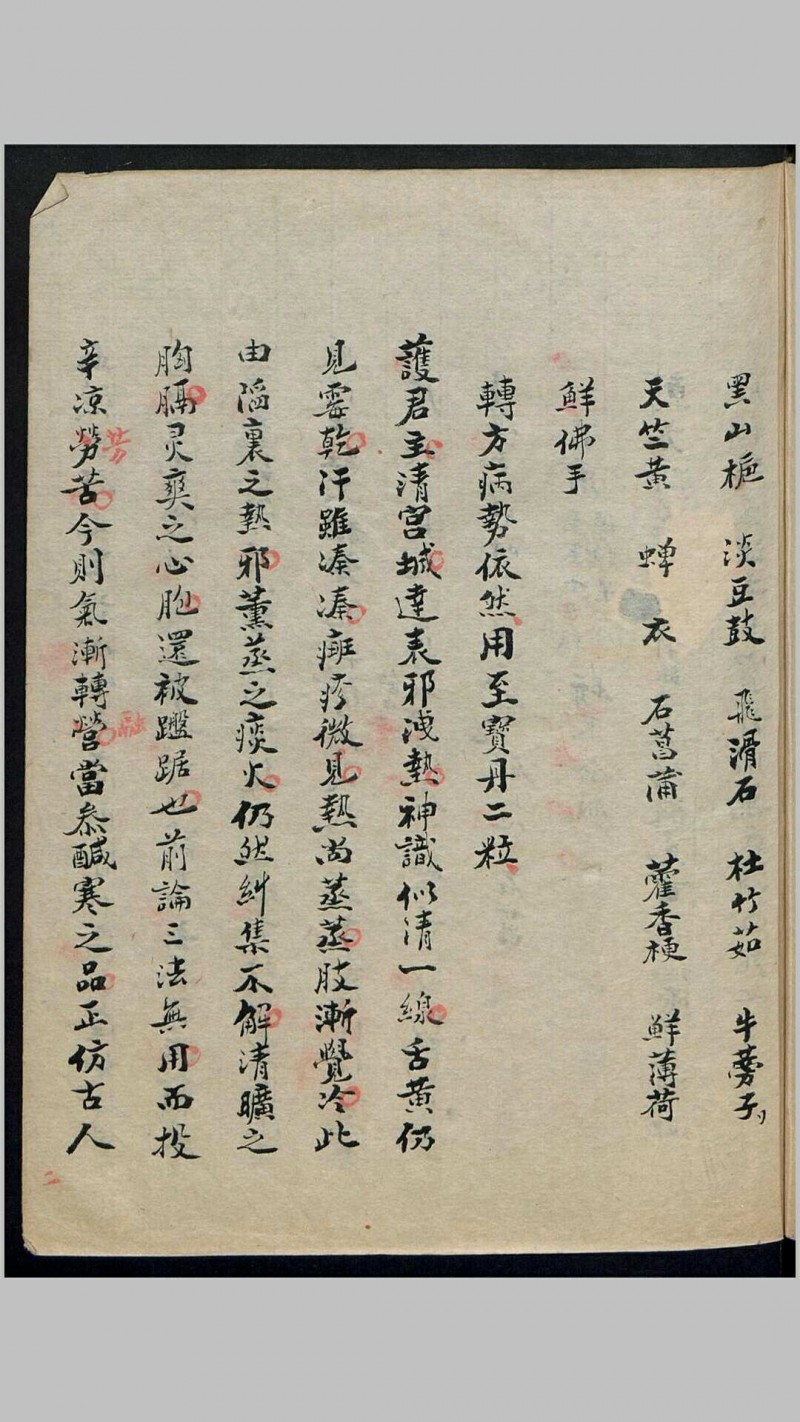 黑山栀　淡豆鼓　飛滑石　杜竹茹　牛蒡子
天竺黃　蟬衣　石菖蒲　藿香梗　鮮薄荷
鮮佛手
轉方病勢依然用至寶丹二粒
護君主清宮城達表邪洩熱神識似清一線舌黃仍
見霉乾汗雖湊湊㾦疹微見熱尚蒸蒸肢漸覺冷此
由陷裏之熱邪薰蒸之痰火仍然糾集不解清曠之
胸膈灵爽之心胞還被躆踞也前論三法無用而投
辛凉勞苦今則氣漸轉營當叅醎寒之品正仿古人
芳
融